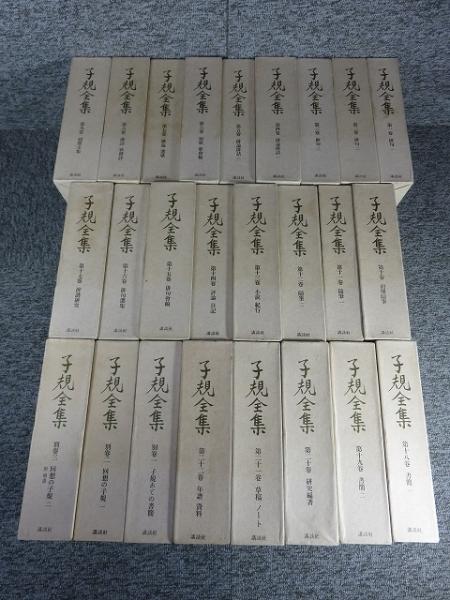 子規全集
第一巻 俳句一
講談社
子規全集
第二巻 俳句二
講談社
子規全集
第三巻 俳句三
講談社
子規全集
第四巻 俳論俳話一
講談社
子規全集
第五巻 俳論俳話二
講談社
子規全集
第六巻 短歌 歌會稿
講談社
子規全集
第七巻 歌論 選歌
講談社
子規全集
第八巻 漢詩 新體詩
講談社
子規全集
第九巻 初期文集
講談社
子規全集
第十巻 初期隨筆
講談社
子規全集
第十一巻 隨筆一
講談社
子規全集
第十二巻 隨筆二
講談社
子規全集
第十三巻 小説 紀行
講談社
子規全集
第十四巻 評論 日記
講談社
子規全集
第十五巻 俳句會稿
講談社
子規全集
第十六巻 俳句選集
講談社
子規全集
第十七巻 俳諧研究
講談社
子規全集
第十八巻 書簡一
講談社
子規全集
第十九巻 書簡二
講談社
子規全集
第二十巻 研究編著
講談社
子規全集
第二十一巻 草稿 ノート
講談社
子規全集
第二十二巻 年譜 資料
講談社
子規全集
別巻一 子規あての書簡
講談社
子規全集
別巻二 回想の子規一
講談社
子規全集
別巻三 回想の子規二
講談社